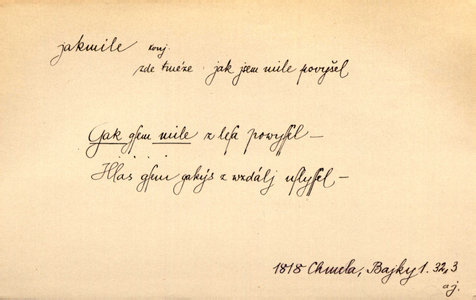 jakmile konj.
zde tmése jak jsem mile povyšel
Gak gsem mile z lesa powyssel —
Hlas gsem gakýs z wzdálj uslyssel —
1818 Chmela, Bajky 1. 32,3
aj.